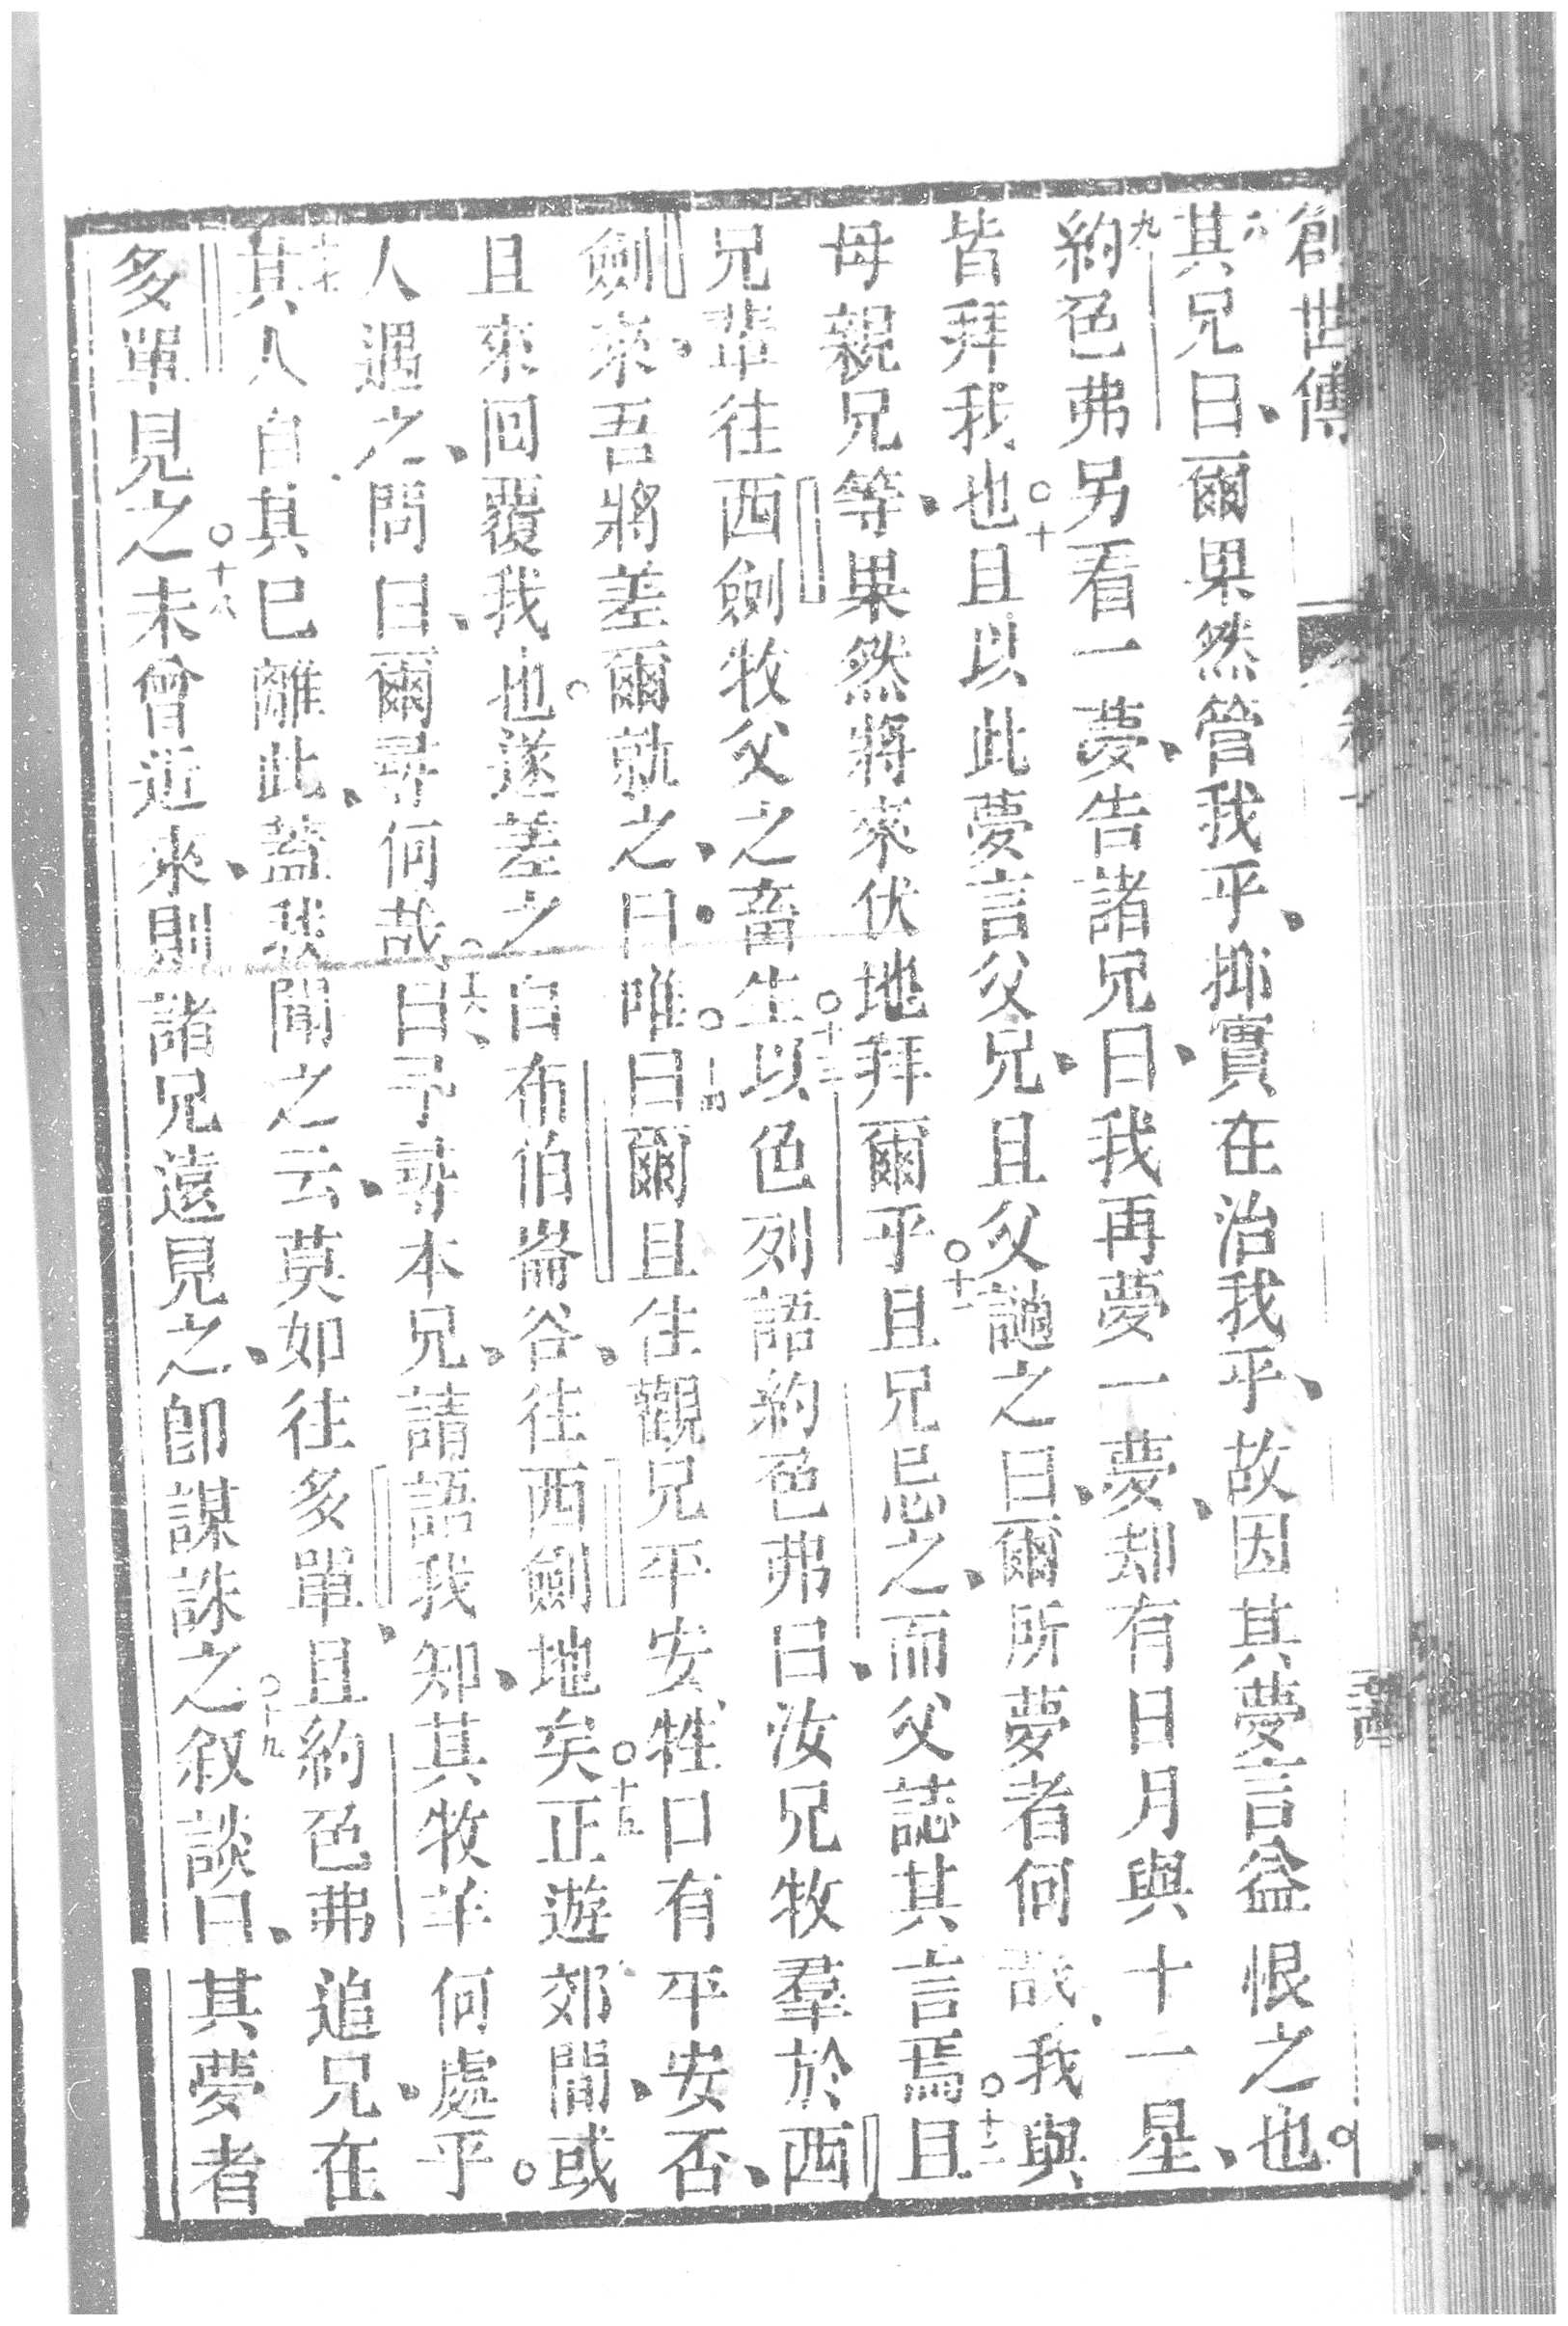 創世傳
八其兄曰、爾果然管我乎、抑實在治我乎、故因其夢言益恨之也○
九約色弗另看一夢、告諸兄曰、我再夢一夢、却有日月與十一星、
皆拜我也○十且以此夢言父兄、且父讁之曰、爾所夢者何哉、我與
母親兄等、果然將來伏地拜爾乎○十一且兄忌之、而父誌其言焉○十二且
兄輩往西劍牧父之畜生○十三以色列語約色弗曰、汝兄牧羣於西
劍、來吾將差爾就之、曰唯○十四曰爾且往觀兄平安、牲口有平安否、
且來回覆我也。遂差之自布伯崙谷、往西劍地矣○十五正遊郊間、或
人遇之、問曰、爾尋何哉○十六曰、予尋本兄、請語我知、其牧羊何處乎○
十七其人曰其已離此、蓋我聞之云、莫如往多單、且約色弗追兄、在
多單見之○十八未曾近來、則諸兄遠見之、卽謀誅之○十九叙談曰、其夢者